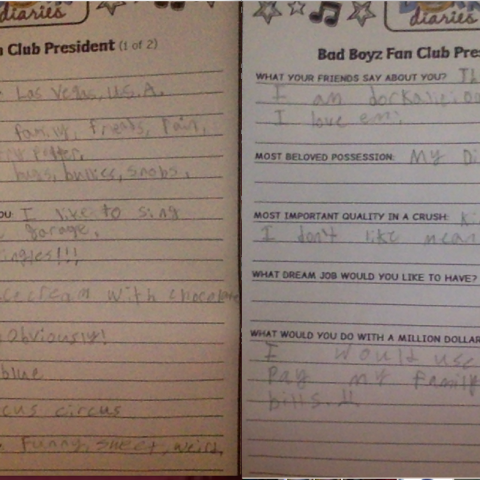 diaries
Club President (1 of 2)
Las Vegas, U.S.A.
family, friends, Paint,
bugs, bullies, snobs,
OU: I like to sing
garage,
ingles!!!
icecream with chocolate
Obviously!
blue
cus circus
Funny, sweet, weird,
diaries
Bad Boyz Fan Club Pres
WHAT YOUR FRIENDS SAY ABOUT YOU? Th
I am dorkalicious
I love em!
MOST BELOVED POSSESSION: My Di
MOST IMPORTANT QUALITY IN A CRUSH: Ki
I don't like mean
WHAT DREAM JOB WOULD YOU LIKE TO HAVE?
WHAT WOULD YOU DO WITH A MILLION DOLLAR
I would use
Pay my Family
bills.